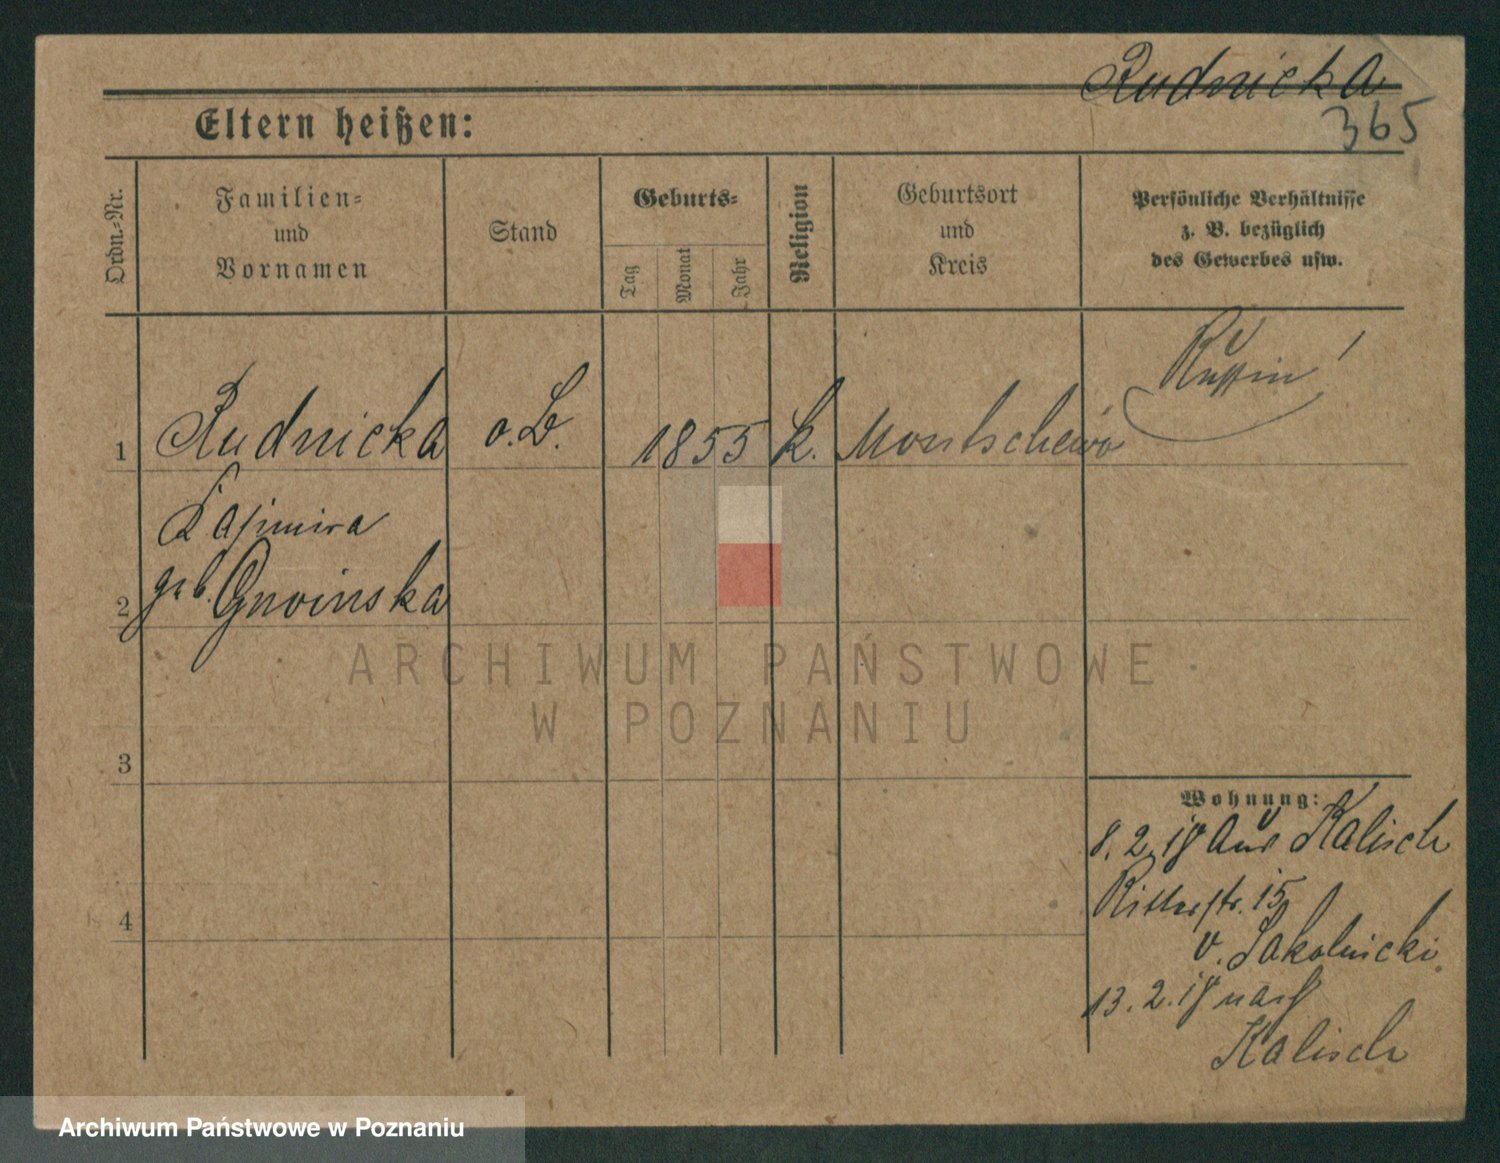 Rudnicka
365
Eltern heißen:
Ordn.-Nr.
Familien-
und
Vornamen
Stand
Geburts-
Tag
Monat
Jahr
Religion
Geburtsort
und
Kreis
Persönliche Verhältnisse
z. B. bezüglich
des Gewerbes usw.
Russin
1 Rudnicka o. B. 1855 k. Montschewo
Kasimira
2 geb. Gnoinska
3
4
ARCHIWUM PAŃSTWOWE
W POZNANIU
Wohnung:
8. 2. 18 aus Kalisch
Ritterstr. 15
v. Sokolnicki
13. 2. 18 nach
Kalisch
Archiwum Państwowe w Poznaniu